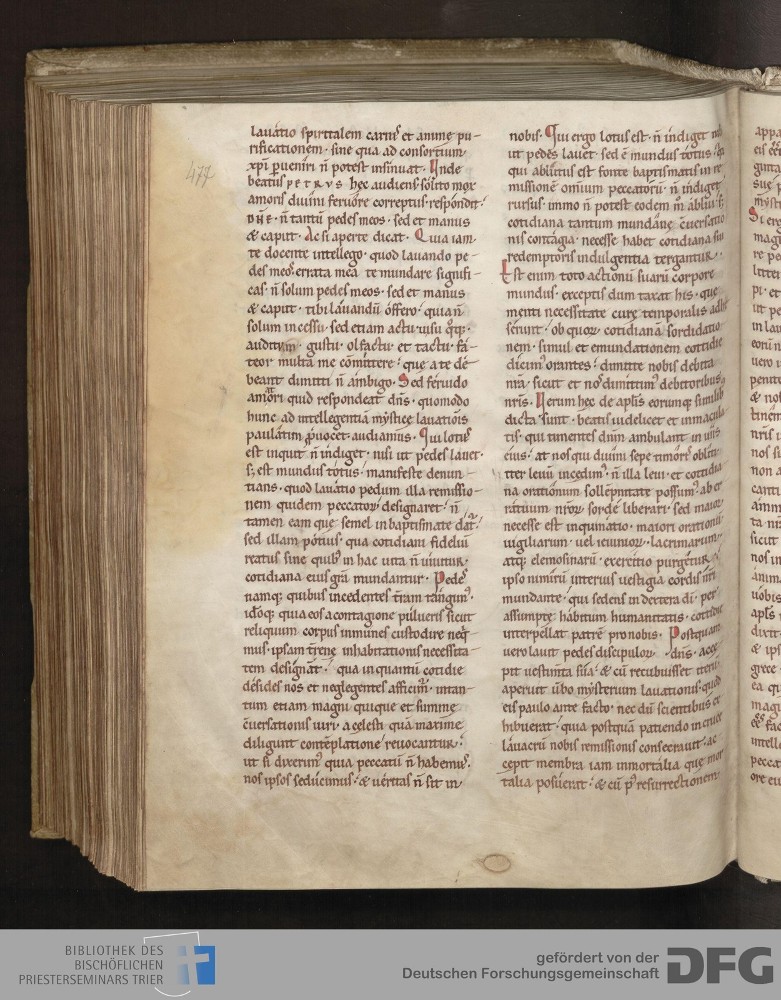 477
lauatio spiritalem carnis et anime pu-
rificationem · sine qua ad consortium
xp̄i ꝑueniri n̄ potest insinuat · Unde
beatus PETRVS hec audiens solito mox
amoris diuini feruore correptus respondit ·
DN̄E · n̄ tantū pedes meos · sed et manus
& caput · Ac si aperte dicat · Quia iam
te docente intellego · quod lauando pe-
des meos errata mea te mundare signifi-
cas · n̄ solum pedes meos · sed et manus
& caput · tibi lauandū offero · quia n̄
solum incessu · sed etiam actu uisu q̄q;
auditum · gustu · olfactu · et tactu · fa-
teor multa me cōmittere · que a te de-
beant dimitti n̄ ambigo · Sed feruido
amori quid respondeat dn̄s · quomodo
hunc ad intellegentiā mystice lauationis
paulatim ꝓuocet · audiamus · Qui lotus
est inquit n̄ indiget · nisi ut pedes lauet ·
s; est mundus totus · manifeste denun-
tians · quod lauatio pedum illa remissio-
nem quidem peccatoꝝ designaret · n̄
tamen eam que semel in baptismate dat̄ ·
sed illam potius · qua cotidiani fideliū
reatus sine quib; in hac uita n̄ uiuitur
cotidiana eius grā mundantur · Pedes
namq; quibus incedentes t̄ram tangim; ·
idōq; quia eos a contagione pulueris sicut
reliquum corpus inmunes custodire neq̄-
mus · ipsam t̄rene inhabitationis necessita-
tem designat · qua in quantū cotidie
desides nos et neglegentes afficim; · intan-
tum etiam magni quique et summe
c̄uersationis uiri · a celesti quā maxime
diligunt contēplatione reuocantur ·
ut si dixerim; quia peccatū n̄ habemus ·
nos ipsos seducimus · & ueritas n̄ sit in
nobis · Qui ergo lotus est · n̄ indiget nisi
ut pedes lauet · sed ē mundus totus
qui ablutus est fonte baptismatis in re-
missionē omnium peccatorū · n̄ indiget
rursus · immo n̄ potest eodem m̊ ablui · s;
cotidiana tantum mundane c̄uersatio-
nis contagia · necesse habet cotidiana sui
redemptoris indulgentia tergantur ·
Est enim toto actionū suarū corpore
mundus · exceptis dum taxat his · que
menti necessitate cure temporalis adhe-
serunt · ob quoꝝ cotidiana sordidatio-
nem · simul et emundationem cottidie
dicim; orantes · dimitte nobis debita
nr̄a · sicut et nos dimittim; debitoribus
nr̄is · Uerum hec de apl̄is eorumq; similib;
dicta sunt · beatis uidelicet et inmacula-
tis · qui timentes dn̄m ambulant in uiis
eius · at nos qui diuini sepe timoris obliti ·
iter leuiū incedim; · n̄ illa leui · et cottidia-
na orationum sollēpnitate possum; ab er-
ratuum nroꝝ sorde liberari · sed maior
necesse est inquinatio · maiori orationū
uigiliarum · uel ieiunioꝝ · lacrimarum ·
atq; elemosinarū · exercitio purgetur ·
ipso nimirū interius uestigia cordis nr̄i
mundante · qui sedens in dextera di · per
assumpte habitum humanitatis · cottidie
interpellat patrē pro nobis · Postquam
uero lauit pedes discipuloꝝ dn̄s · acce-
pit uestimta sua · & cū recubuisset iterū
aperuit uʳbo mysterium lauationis · quod
eis paulo ante facto · nec dū scientibus ex-
hibuerat · quia postquā patiendo in cruce
lauacrū nobis remissionis consecrauit · ac-
cepit membra iam inmortalia que mor-
talia posuerat · & cū p; resurrectionem
BIBLIOTHEK DES
BISCHÖFLICHEN
PRIESTERSEMINARS TRIER
gefördert von der
Deutschen Forschungsgemeinschaft
DFG